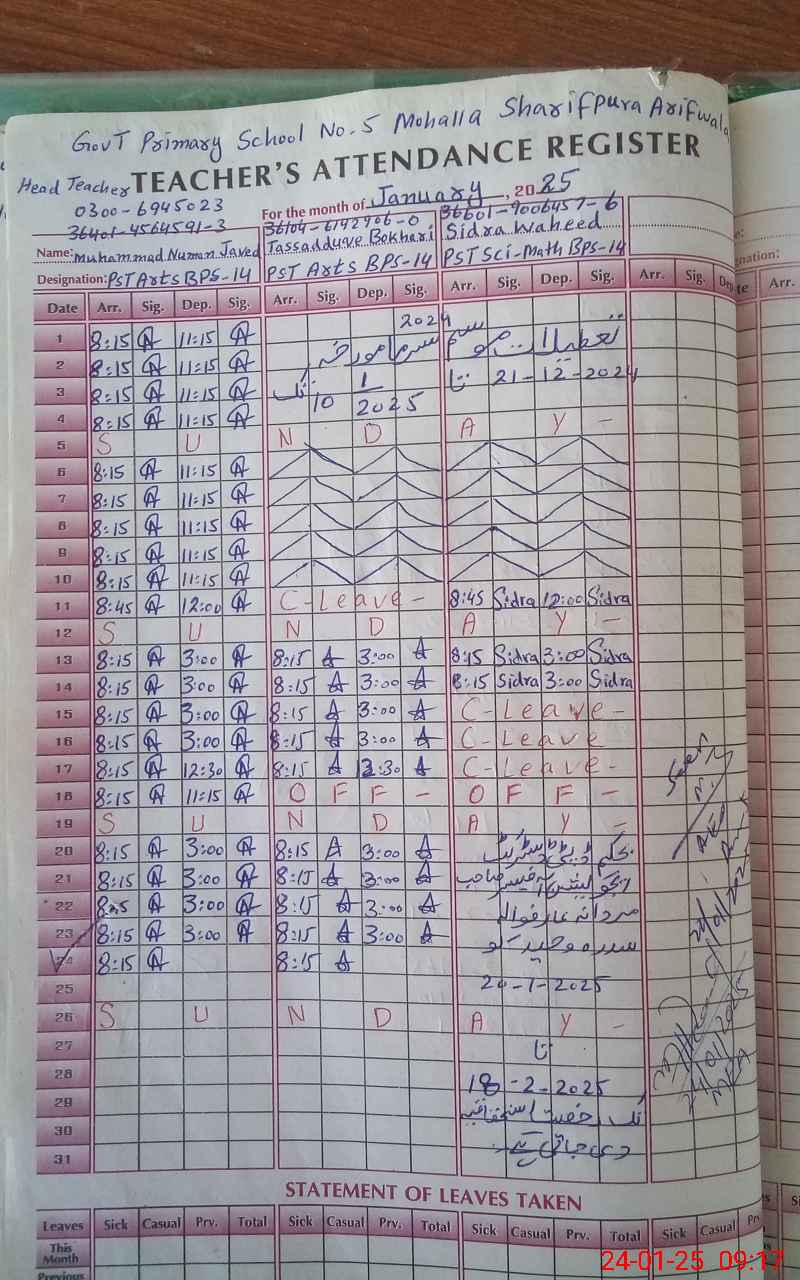 GovT Primary School No.5 Mohalla Sharifpura Arifwala
TEACHER'S ATTENDANCE REGISTER
Head Teacher
0300-6945023
For the month of January, 2025
36401-4564591-3 36104-6192906-0 36601-9006457-6
Name: Muhammad Numan Javed Tassadduve Bokhari Sidra Waheed
Designation: PST Arts BPS-14 PST Arts BPS-14 PST Sci-Math BPS-14
Date Arr. Sig. Dep. Sig. Arr. Sig. Dep. Sig. Arr. Sig. Dep. Sig. Arr. Sig.
1 8:15 11:15 2024
تعطیلات موسم سرما مورخہ
2 8:15 11:15
3 8:15 11:15 21-12-2024 تا
4 8:15 11:15 10 1 2025 تک
5 S U N D A Y -
6 8:15 11:15
7 8:15 11:15
8 8:15 11:15
9 8:15 11:15
10 8:15 11:15
11 8:45 12:00 C-Leave- 8:45 Sidra 12:00 Sidra
12 S U N D A Y -
13 8:15 3:00 8:15 3:00 8:15 Sidra 3:00 Sidra
14 8:15 3:00 8:15 3:00 8:15 Sidra 3:00 Sidra
15 8:15 3:00 8:15 3:00 C-Leave-
16 8:15 3:00 8:15 3:00 C-Leave
17 8:15 12:30 8:15 12:30 C-Leave-
18 8:15 11:15 OFF- OFF-
19 S U N D A Y -
20 8:15 3:00 8:15 3:00 بحکم ڈپٹی ڈسٹرکٹ
21 8:15 3:00 8:15 3:00 ایجوکیشن آفیسر صاحب
22 8:15 3:00 8:15 3:00 مردانہ عارفوالہ
23 8:15 3:00 8:15 3:00 سدرہ وحید کو
24 8:15 8:15
25 20-1-2025
26 S U N D A Y -
27 تا
28 18-2-2025
29 تک رخصت استحقاقیہ
30 دی جاتی ہے
31
STATEMENT OF LEAVES TAKEN
Leaves Sick Casual Prv. Total Sick Casual Prv. Total Sick Casual Prv. Total Sick Casual
This Month
Previous
24-01-25 09:17